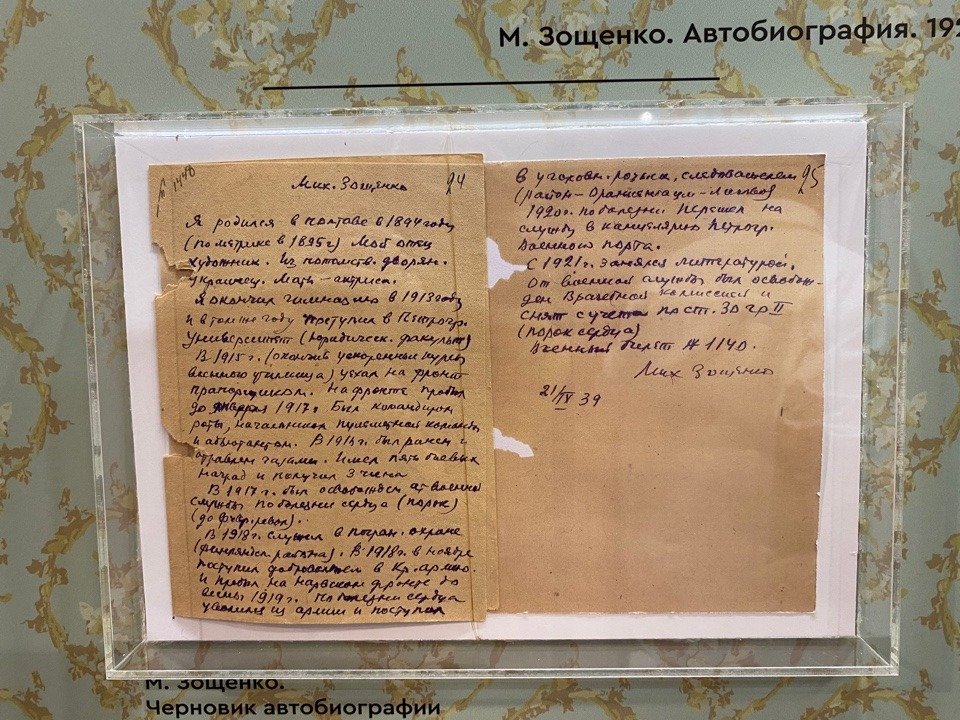 М. Зощенко. Автобиография. 192
№ 1440
Мих. Зощенко
24
Я родился в Полтаве в 1894 году
(по метрике в 1895 г.) Мой отец
художник. Из потомств. дворян.
украинец. Мать – актриса.
Я окончил гимназию в 1913 году
и в том же году поступил в Петрогр.
Университет (юридическ. факульт)
В 1915 г. (окончив ускоренные курсы
военного училища) уехал на фронт
прапорщиком. На фронте пробыл
до февраля 1917 г. Был командиром
роты, начальником пулеметной команды
и адъютантом. В 1916 г. был ранен и
отравлен газами. Имел пять боевых
наград и получил 3 чина
В 1917 г. был освобожден от военной
службы по болезни сердца (порок)
(до февр. револ).
В 1918 г. служил в погран. охране
В 1918 г. в ноябре
поступил добровольцем в Кр. армию.
и пробыл на нарвском фронте до
весны 1919 г. По болезни сердца
уволился из армии и поступил
25
в уголовн. розыск, следователем
(район – Ораниенбаум – Лигово)
1920 г. по болезни перешел на
службу в канцелярию Петрогр.
Военного порта.
С 1921 г. занялся литературой.
От военной службы был освобож-
ден Врачебной комиссией и
снят с учета по ст. 30 гр II
(порок сердца)
Военный билет № 1140.
Мих Зощенко
21/IV 39
М. Зощенко.
Черновик автобиографии